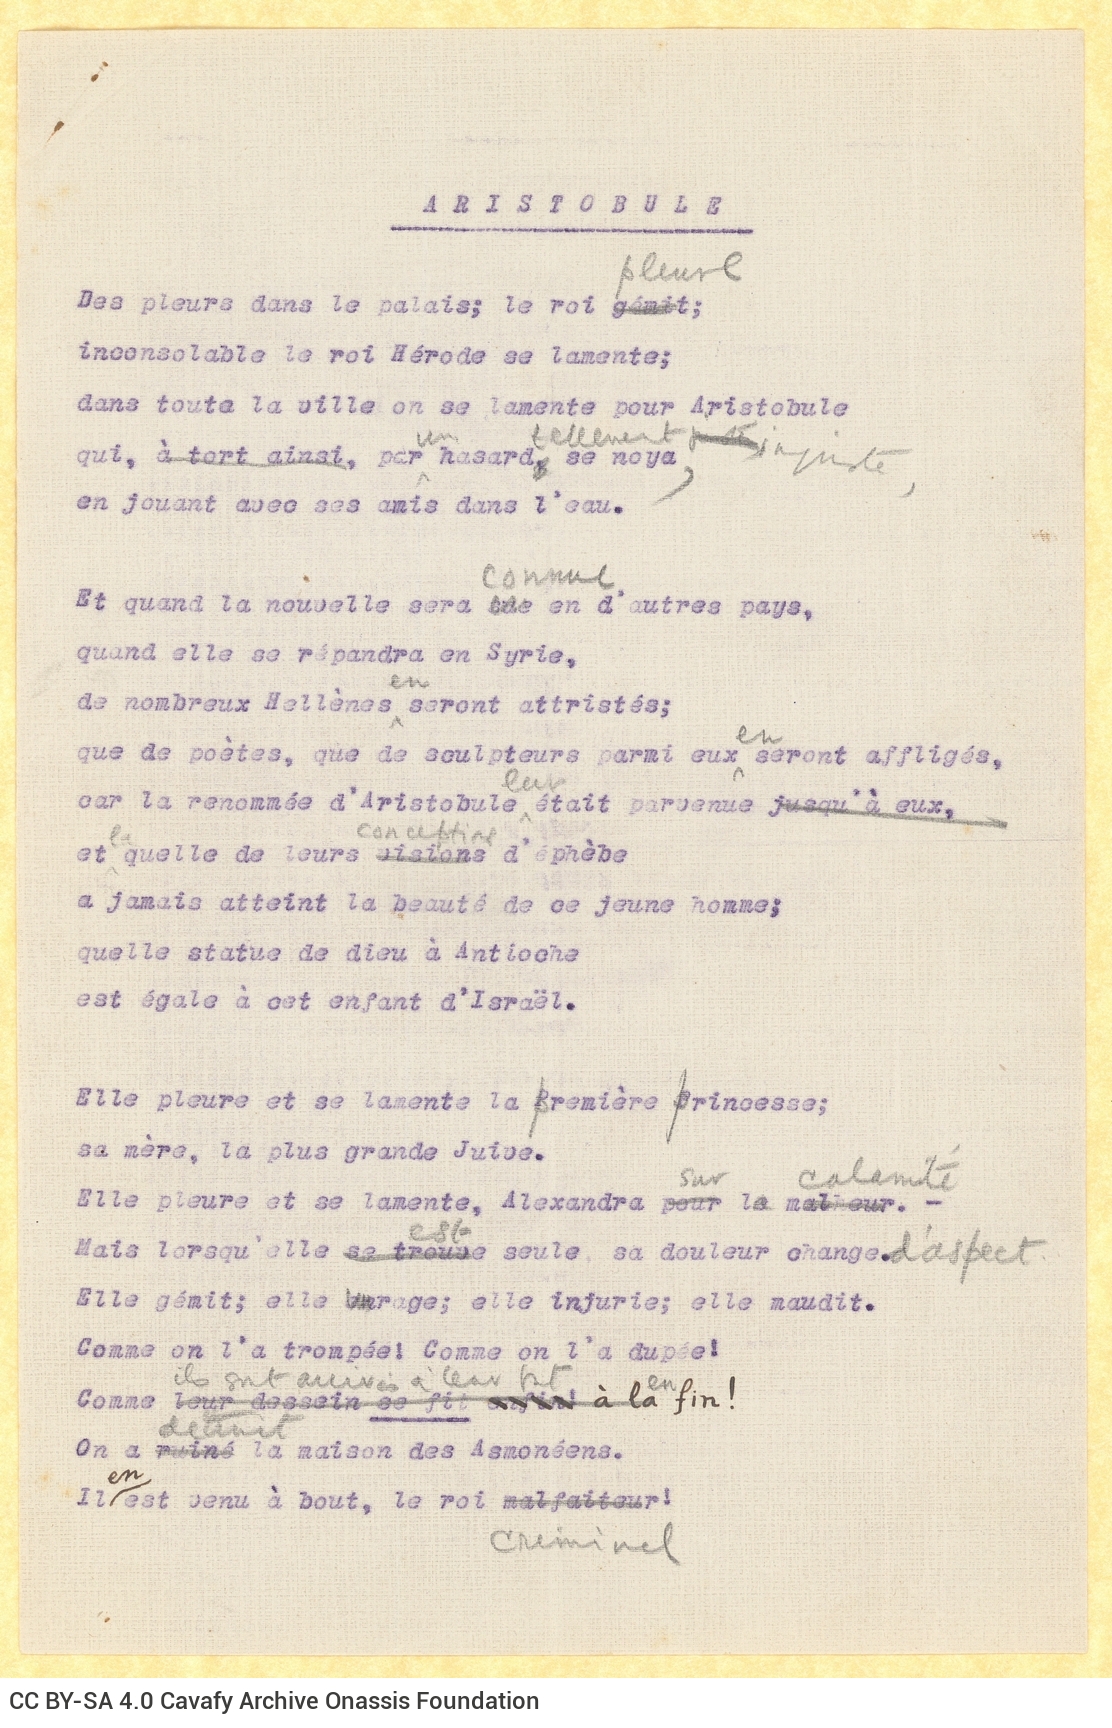 ARISTOBULE
pleure
Des pleurs dans le palais; le roi gémit;
inconsolable le roi Hérode se lamente;
dans toute la ville on se lamente pour Aristobule
un tellement injuste,
qui, à tort ainsi, par hasard, se noya,
en jouant avec ses amis dans l'eau.
connue
Et quand la nouvelle sera sue en d'autres pays,
quand elle se répandra en Syrie,
en
de nombreux Hellènes seront attristés;
en
que de poètes, que de sculpteurs parmi eux seront affligés,
leur
car la renommée d'Aristobule était parvenue jusqu'à eux,
la conceptions
et quelle de leurs visions d'éphèbe
a jamais atteint la beauté de ce jeune homme;
quelle statue de dieu à Antioche
est égale à cet enfant d'Israël.
Elle pleure et se lamente la première princesse;
sa mère, la plus grande Juive.
sur calamité
Elle pleure et se lamente, Alexandra pour le malheur. —
est
Mais lorsqu'elle se trouve seule sa douleur change. d'aspect.
Elle gémit; elle enrage; elle injurie; elle maudit.
Comme on l'a trompée! Comme on l'a dupée!
ils sont arrivés à leur but en
Comme leur dessein se fit enfin! à la fin!
détruit
On a ruiné la maison des Asmonéens.
en
Il est venu à bout, le roi malfaiteur!
criminel
CC BY-SA 4.0 Cavafy Archive Onassis Foundation